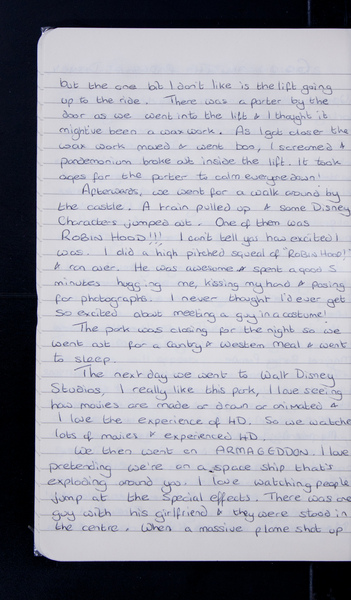 but the one bit I don't like is the lift going
up to the ride. There was a porter by the
door as we went into the lift & I thought it
might've been a wax work. As I got closer the
wax work moved & went boo, I screamed &
pandemonium broke out inside the lift. It took
ages for the porter to calm everyone down!
Afterwards, we went for a walk around by
the castle. A train pulled up & some Disney
Characters jumped out. One of them was
ROBIN HOOD!!! I can't tell you how excited I
was. I did a high pitched squeal of "ROBIN HOOD!"
& ran over. He was awesome & spent a good 5
minutes hugging me, kissing my hand & posing
for photographs. I never thought I'd ever get
so excited about meeting a guy in a costume!
The park was closing for the night so we
went out for a Country & Western meal & went
to sleep.
The next day we went to Walt Disney
Studios, I really like this park, I love seeing
how movies are made or drawn or animated &
I love the experience of 4D. So we watched
lots of movies & experienced 4D.
We then went on ARMAGEDDON. I love
pretending we're on a space ship that's
exploding around you. I love watching people
jump at the special effects. There was one
guy with his girlfriend & they were stood in
the centre. When a massive plome shot up